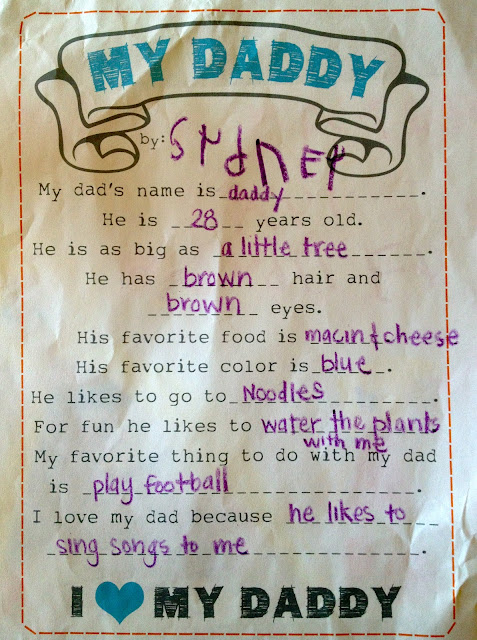 MY DADDY
by: SYdNEY
My dad's name is daddy.
He is 28 years old.
He is as big as a little tree.
He has brown hair and
brown eyes.
His favorite food is macin&cheese
His favorite color is blue.
He likes to go to Noodles.
For fun he likes to water the plants
with me
My favorite thing to do with my dad
is play football.
I love my dad because he likes to
sing songs to me.
I ♥ MY DADDY